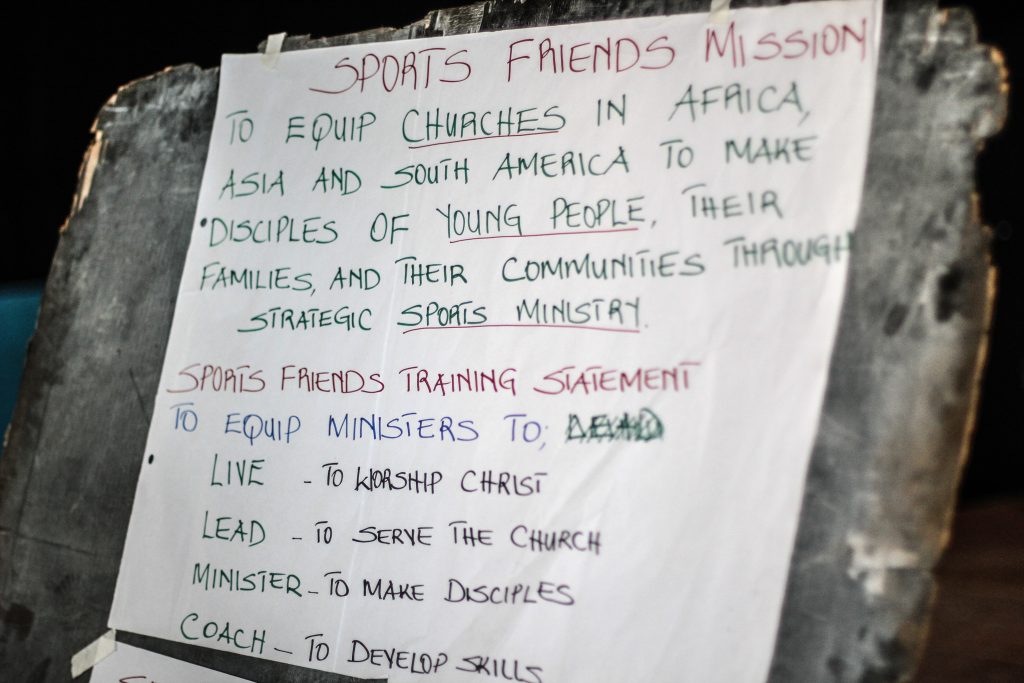 SPORTS FRIENDS MISSION
TO EQUIP CHURCHES IN AFRICA,
ASIA AND SOUTH AMERICA TO MAKE
DISCIPLES OF YOUNG PEOPLE, THEIR
FAMILIES, AND THEIR COMMUNITIES THROUGH
STRATEGIC SPORTS MINISTRY.
SPORTS FRIENDS TRAINING STATEMENT
TO EQUIP MINISTERS TO;
LIVE - TO WORSHIP CHRIST
LEAD - TO SERVE THE CHURCH
MINISTER - TO MAKE DISCIPLES
COACH - TO DEVELOP SKILLS